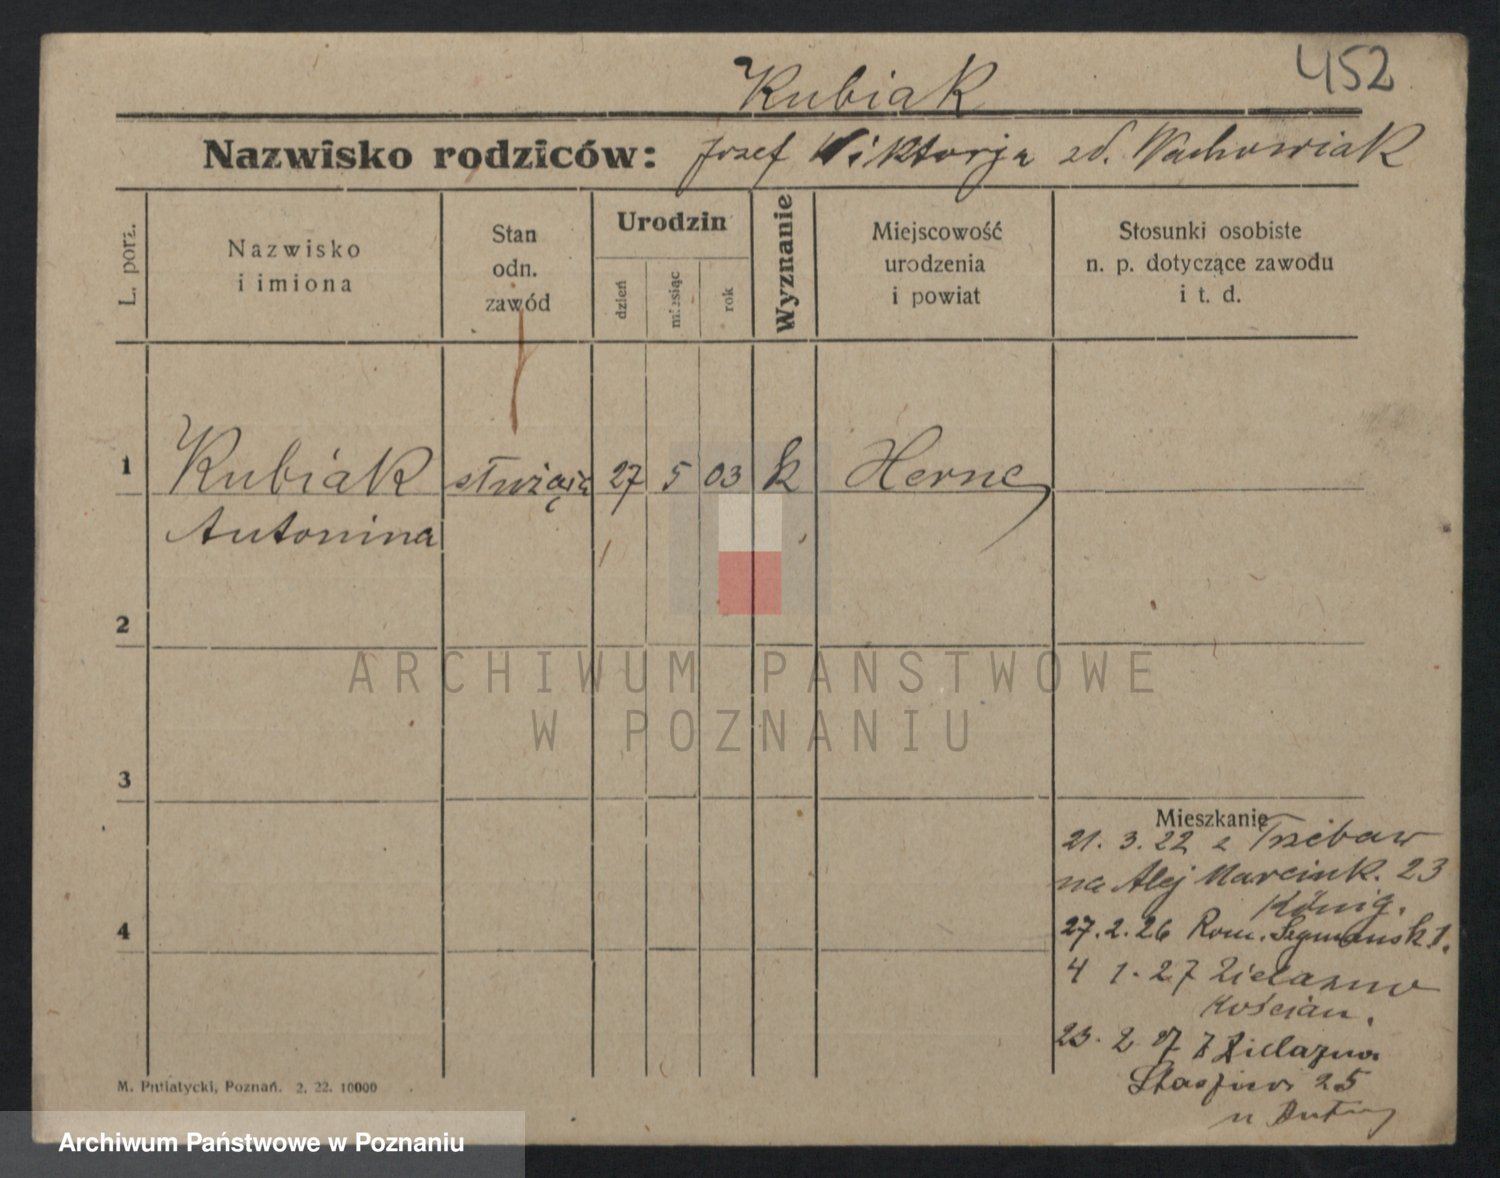 452
Kubiak
Nazwisko rodziców: Józef Wiktorja zd. Wachowiak
L. porz.
Nazwisko
i imiona
Stan
odn.
zawód
Urodzin
dzień
miesiąc
rok
Wyznanie
Miejscowość
urodzenia
i powiat
Stosunki osobiste
n. p. dotyczące zawodu
i t. d.
1
Kubiak służąca 27 5 03 k Herne
Antonina
2
ARCHIWUM PAŃSTWOWE
W POZNANIU
3
Mieszkanie
21. 3. 22 z Trzebaw
na Alej Marcink. 23
König.
4
27. 2. 26 Rom. 1.
4 1. 27
Kościan.
23. 2 27 z
25
u
M. Putiatycki, Poznań. 2. 22. 10000
Archiwum Państwowe w Poznaniu